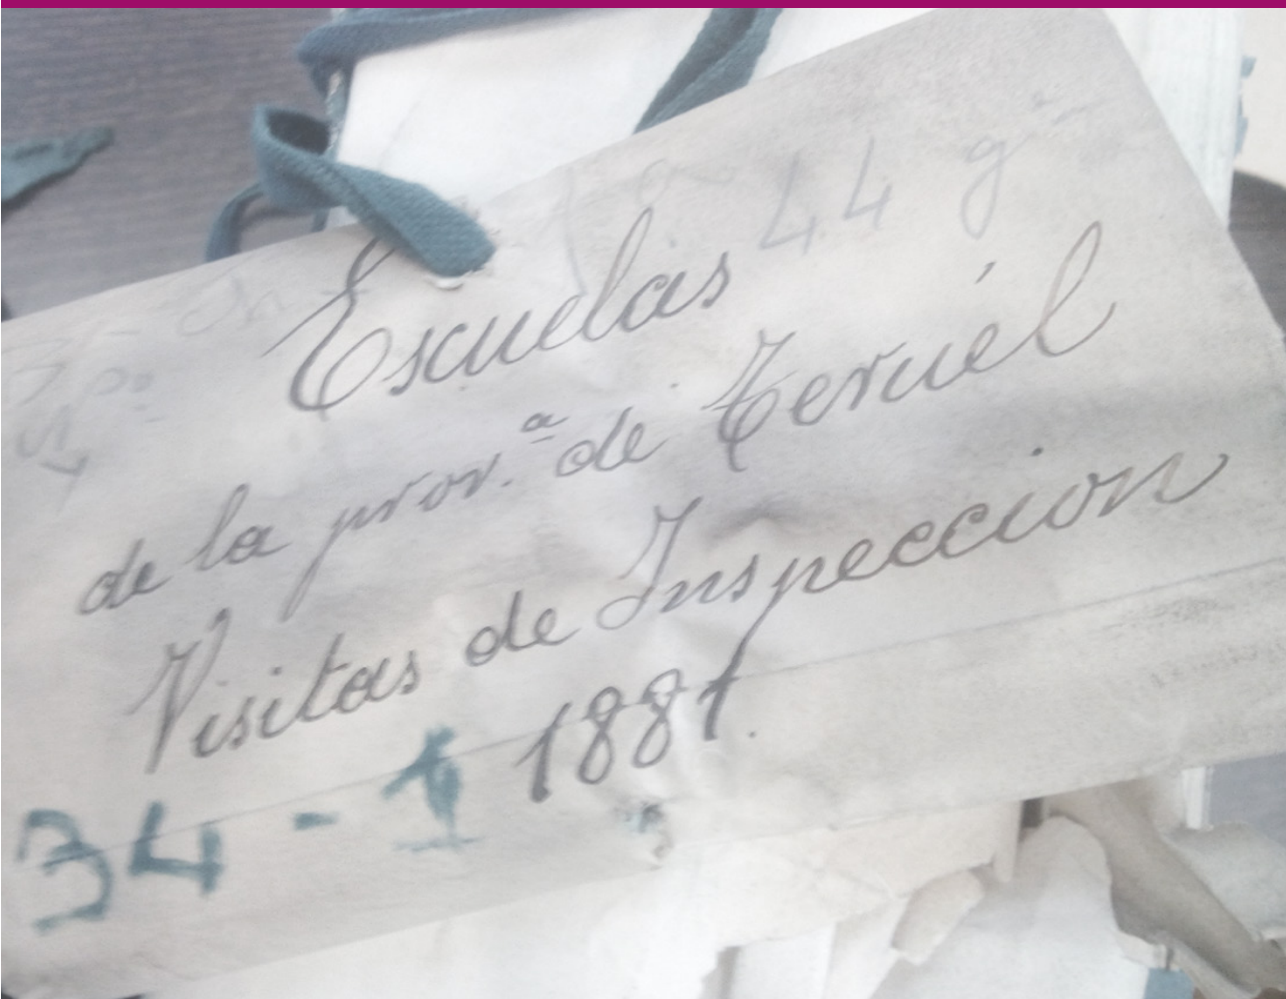 44 g
Escuelas
de la prov.ª de Teruél
Visitas de Inspeccion
1881.
34-1